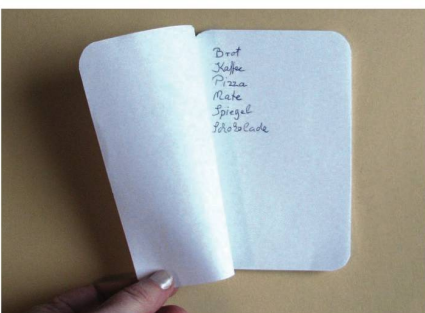 Brot
Kaffee
Pizza
Mate
Spiegel
Schokolade